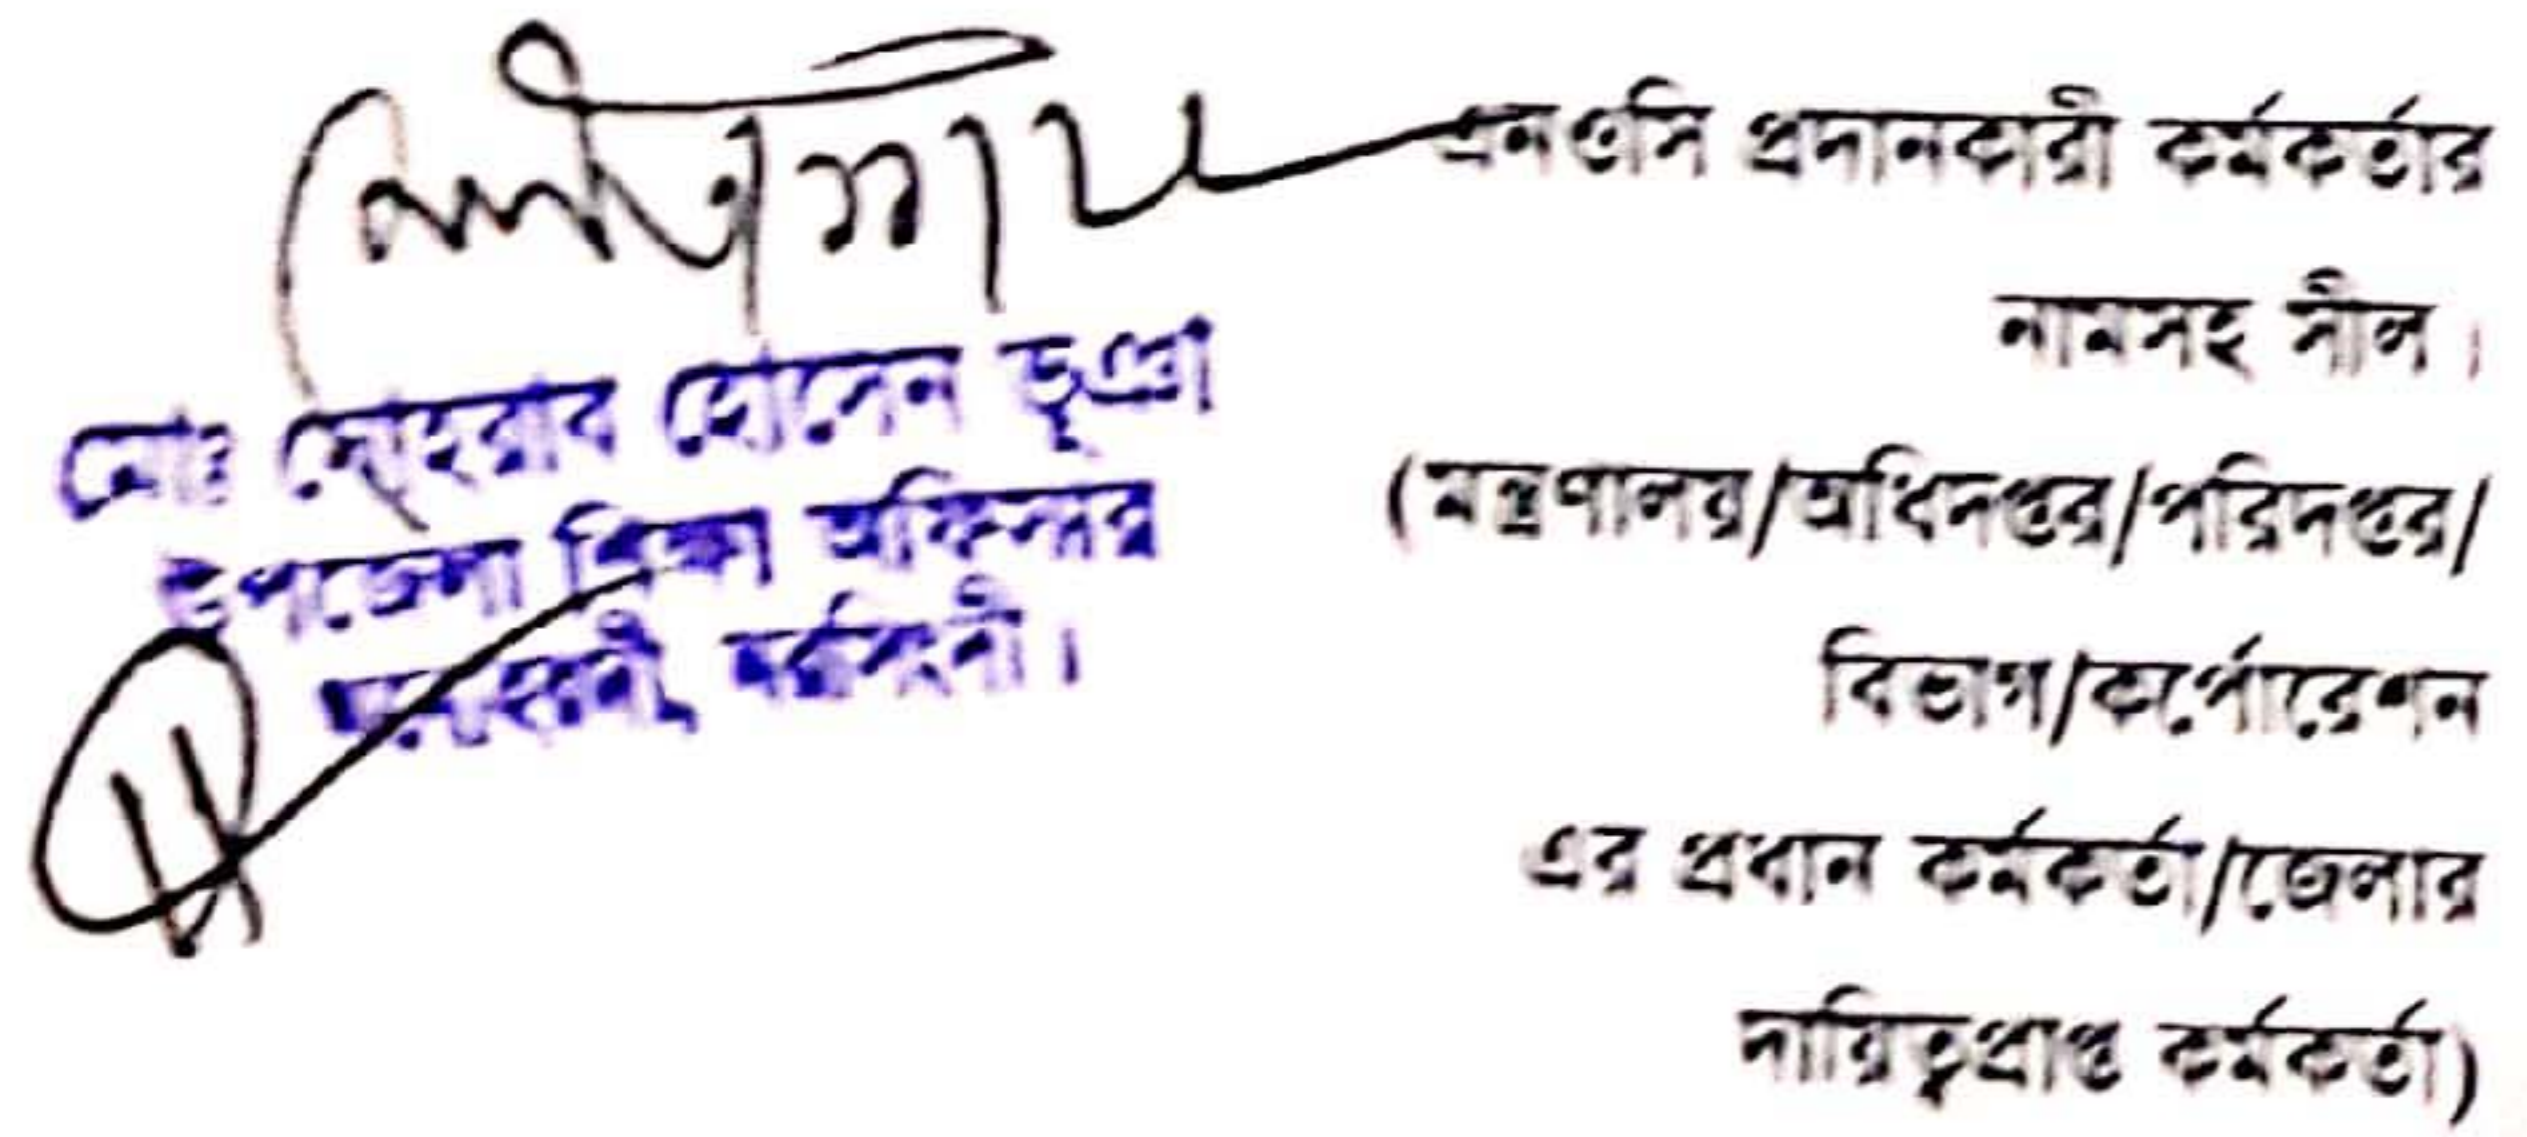 মোঃ সোহরাব হোসেন ভূঞা
উপজেলা শিক্ষা অফিসার
অনাপত্তি প্রদানকারী কর্মকর্তার
নামসহ সীল।
(মন্ত্রণালয়/অধিদপ্তর/পরিদপ্তর/
বিভাগ/কর্পোরেশন
এর প্রধান কর্মকর্তা/জেলার
দায়িত্বপ্রাপ্ত কর্মকর্তা)